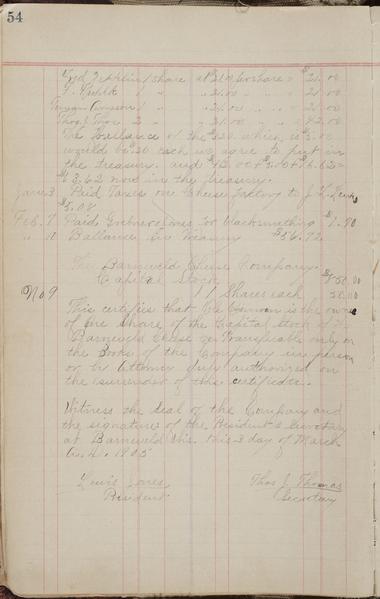 54
Fred 1 Share at $21.00 per share $21.00
F. 1 " " 21.00 " " " 21.00
1 " " 21.00 " " " 21.00
Thos. J. Thos 2 " " 21.00 " " " 42.00
The Ballance of the $20. which is
would be 20 each we agree to put in
the treasury. and $42.00 +
$63.62 now in the treasury.
Jan. 3 Paid Taxes on Cheese factory to J. L.
$5.08
Feb. 7 Paid for blacksmithing $1.90
" 10 Ballance In Treasury $56.72
The Barneveld Cheese Company.
Capital Stock $850.00
No 9 17 Shares each 50.00
This certifies that is the owner
of one Share of the Capital Stock of the
Barneveld Cheese Co. Transferable only on
the Books of the Company in person
or by Attorney duly authorized on
the surrender of this certificate.
Witness the Seal of the Company and
the signature of the President & Secretary
at Barneveld Wis. this 3 day of March
A. D. 1905
Lewis Jones Thos J. Thomas
President Secretary